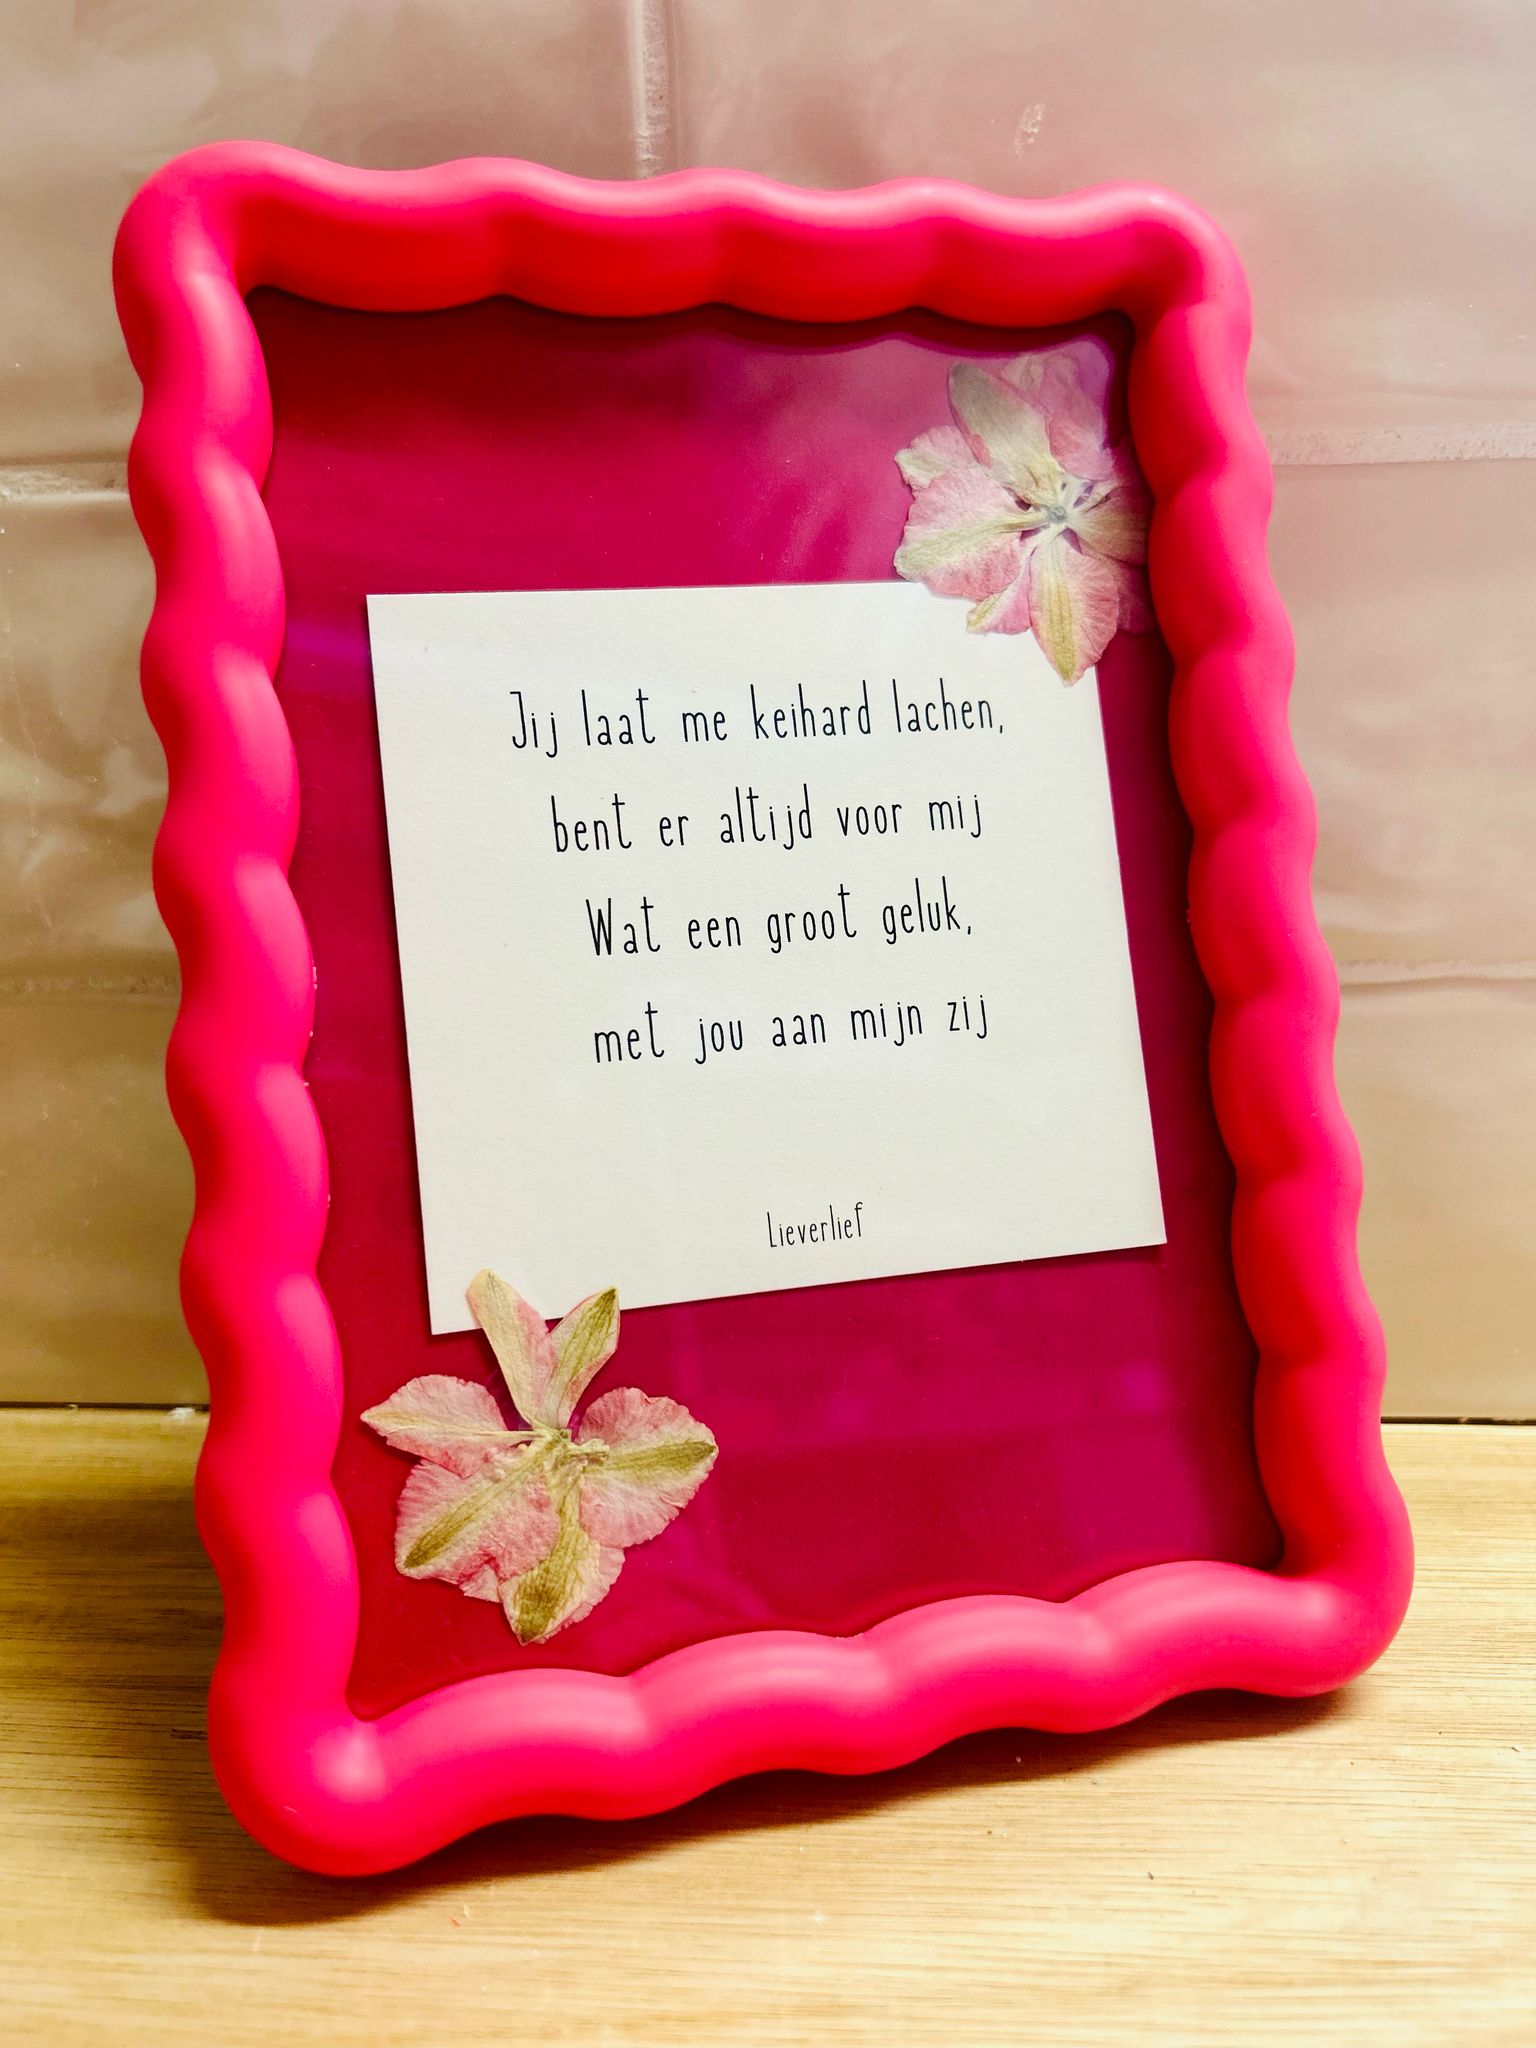 Jij laat me keihard lachen,
bent er altijd voor mij
Wat een groot geluk,
met jou aan mijn zij
Lieverlief